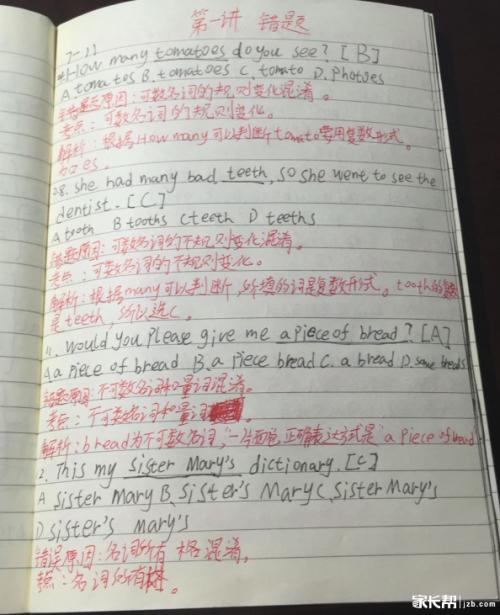 第一讲 错题
7-11
How many tomatoes do you see? [B]
A tomatos B. tomatoes C. tomato D. Photoes
错误原因：可数名词的规则变化混淆。
考点：可数名词的规则变化。
解析：根据How many可以判断tomato要用复数形式。
加es。
8. she had many bad teeth, so she went to see the
dentist. [C]
A tooth B tooths C teeth D teeths
错题原因：可数名词的不规则变化混淆。
考点：可数名词的不规则变化。
解析：根据many可以判断，所填的词是复数形式。tooth的复数
是teeth，所以选C。
11. Would you please give me a piece of bread? [A]
A a piece of bread B. a piece bread C. a bread D. some breads
错题原因：不可数名词和量词混淆。
考点：不可数名词和量词
解析：bread为不可数名词，"一片面包"正确表达方式是"a piece of bread
2. This my sister Mary's dictionary. [C]
A sister Mary B. sister's Mary C. sister Mary's
D sister's mary's
错误原因：名词所有格混淆。
考点：名词所有格。
家长帮 jzb.com